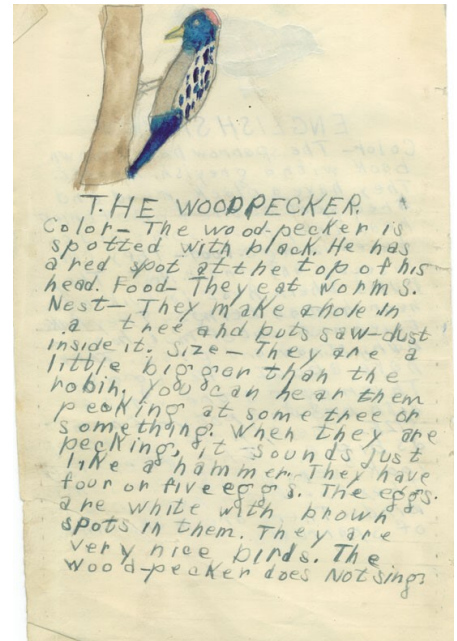 THE WOODPECKER.
Color- The wood-pecker is
spotted with black. He has
a red spot at the top of his
head. Food- They eat worms.
Nest- They make a hole in
a tree and puts saw-dust
inside it. Size- They are a
little bigger than the
robin. You can hear them
pecking at some tree or
something. When they are
pecking, it sounds just
like a hammer. They have
four or five eggs. The eggs.
are white with brown
spots in them. They are
very nice birds. The
wood-pecker does Not sing.